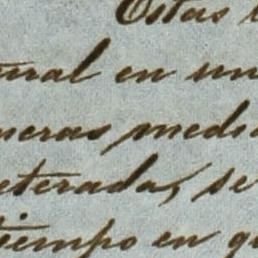 Estas
ural en un
neras medi
eterada, se
tiempo en q